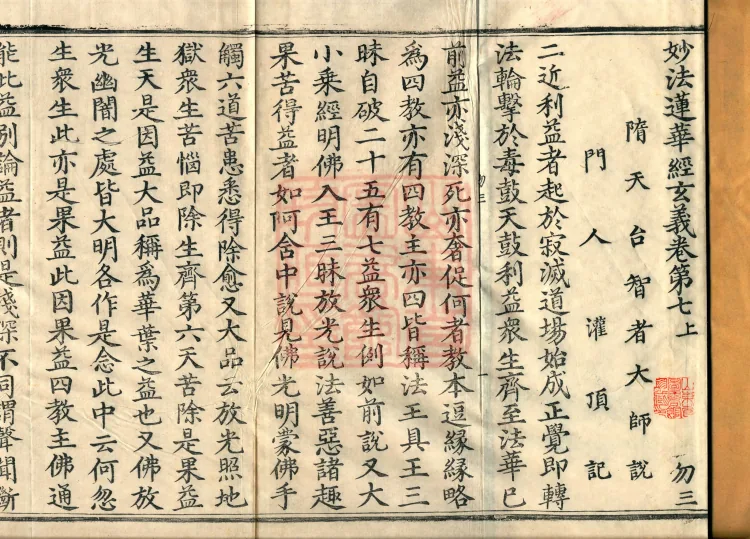 妙法蓮華經玄義卷第七上
勿三
隋天台智者大師說
門人灌頂記
二近利益者起於寂滅道場始成正覺即轉
法輪擊於毒鼓天鼓利益衆生齊至法華已
前益亦淺深死亦奢促何者教本逗緣緣略
勿三
一
爲四教亦有四教主亦四皆稱法王具王三
昧自破二十五有七益衆生例如前說又大
小乘經明佛入王三昧放光說法善惡諸趣
果苦得益者如阿含中說見佛光明蒙佛手
觸六道苦患悉得除愈又大品云放光照地
獄衆生苦惱即除生齊第六天苦除是果益
生天是因益大品稱爲華葉之益也又佛放
光幽闇之處皆大明各作是念此中云何忽
生衆生此亦是果益此因果益四教主佛通
能此益別論益者則是淺深不同謂聲聞斷